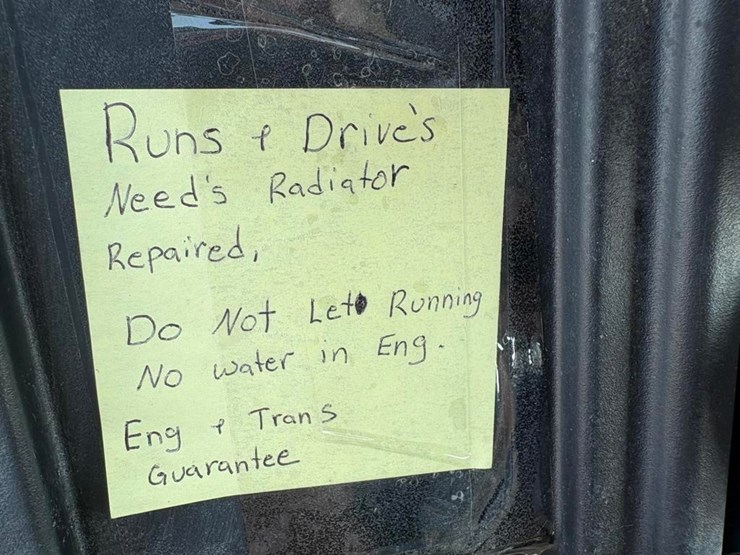 Runs & Drive's
Need's Radiator
Repaired,
Do Not Let Running
No water in Eng.
Eng & Trans
Guarantee